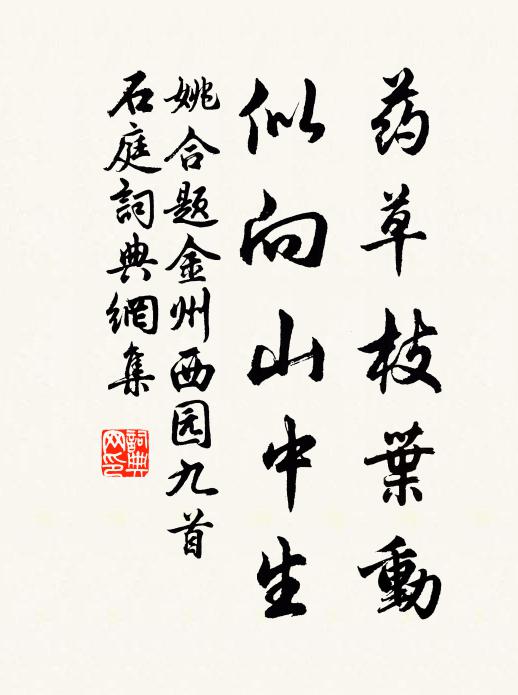 药草枝葉動
似向山中生
姚合题金州西园九首
石庭詞典網集
詞典
网印